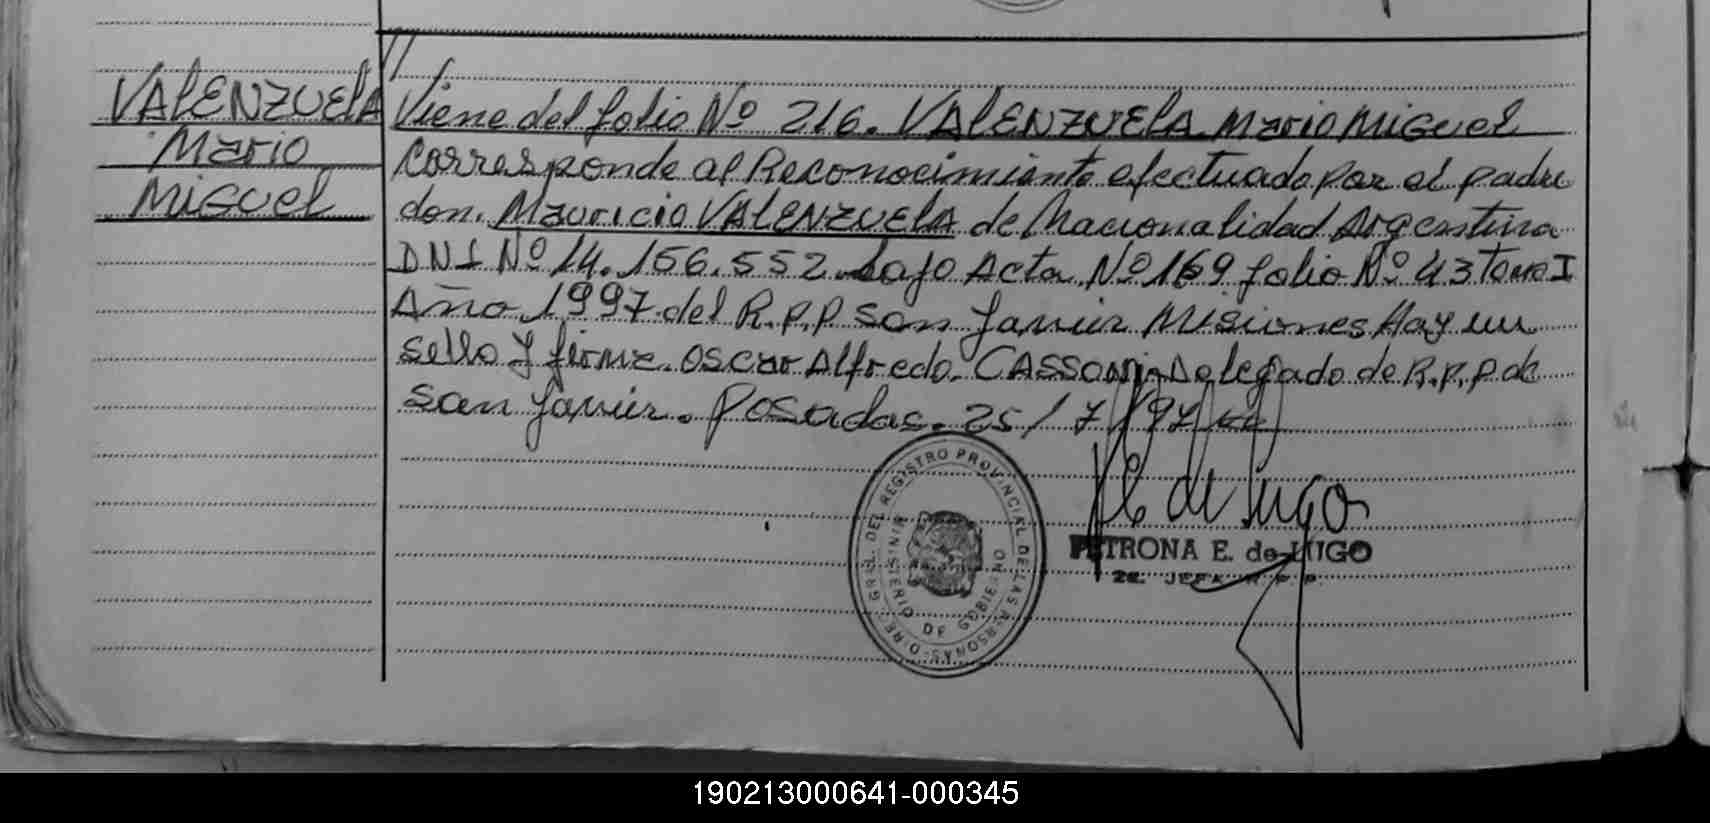 VALENZUELA
Mario
Miguel
Viene del folio Nº 216. VALENZUELA Mario Miguel
Corresponde al Reconocimiento efectuado por el padre
don. Mauricio VALENZUELA de Nacionalidad Argentina
DNI Nº 14.156.552 bajo Acta Nº 169 folio Nº 43 Tomo I
Año 1997 del R.P.P San Javier Misiones Hay un
sello y firma. Oscar Alfredo. CASSONI. Delegado de R.P.P de
San Javier. Posadas. 25/7/97
DIREC. GRAL. DEL REGISTRO PROVINCIAL DE LAS PERSONAS
MINISTERIO DE GOBIERNO
E. de Lugo
PETRONA E. de LUGO
2a. JEFA R.P.P.
190213000641-000345